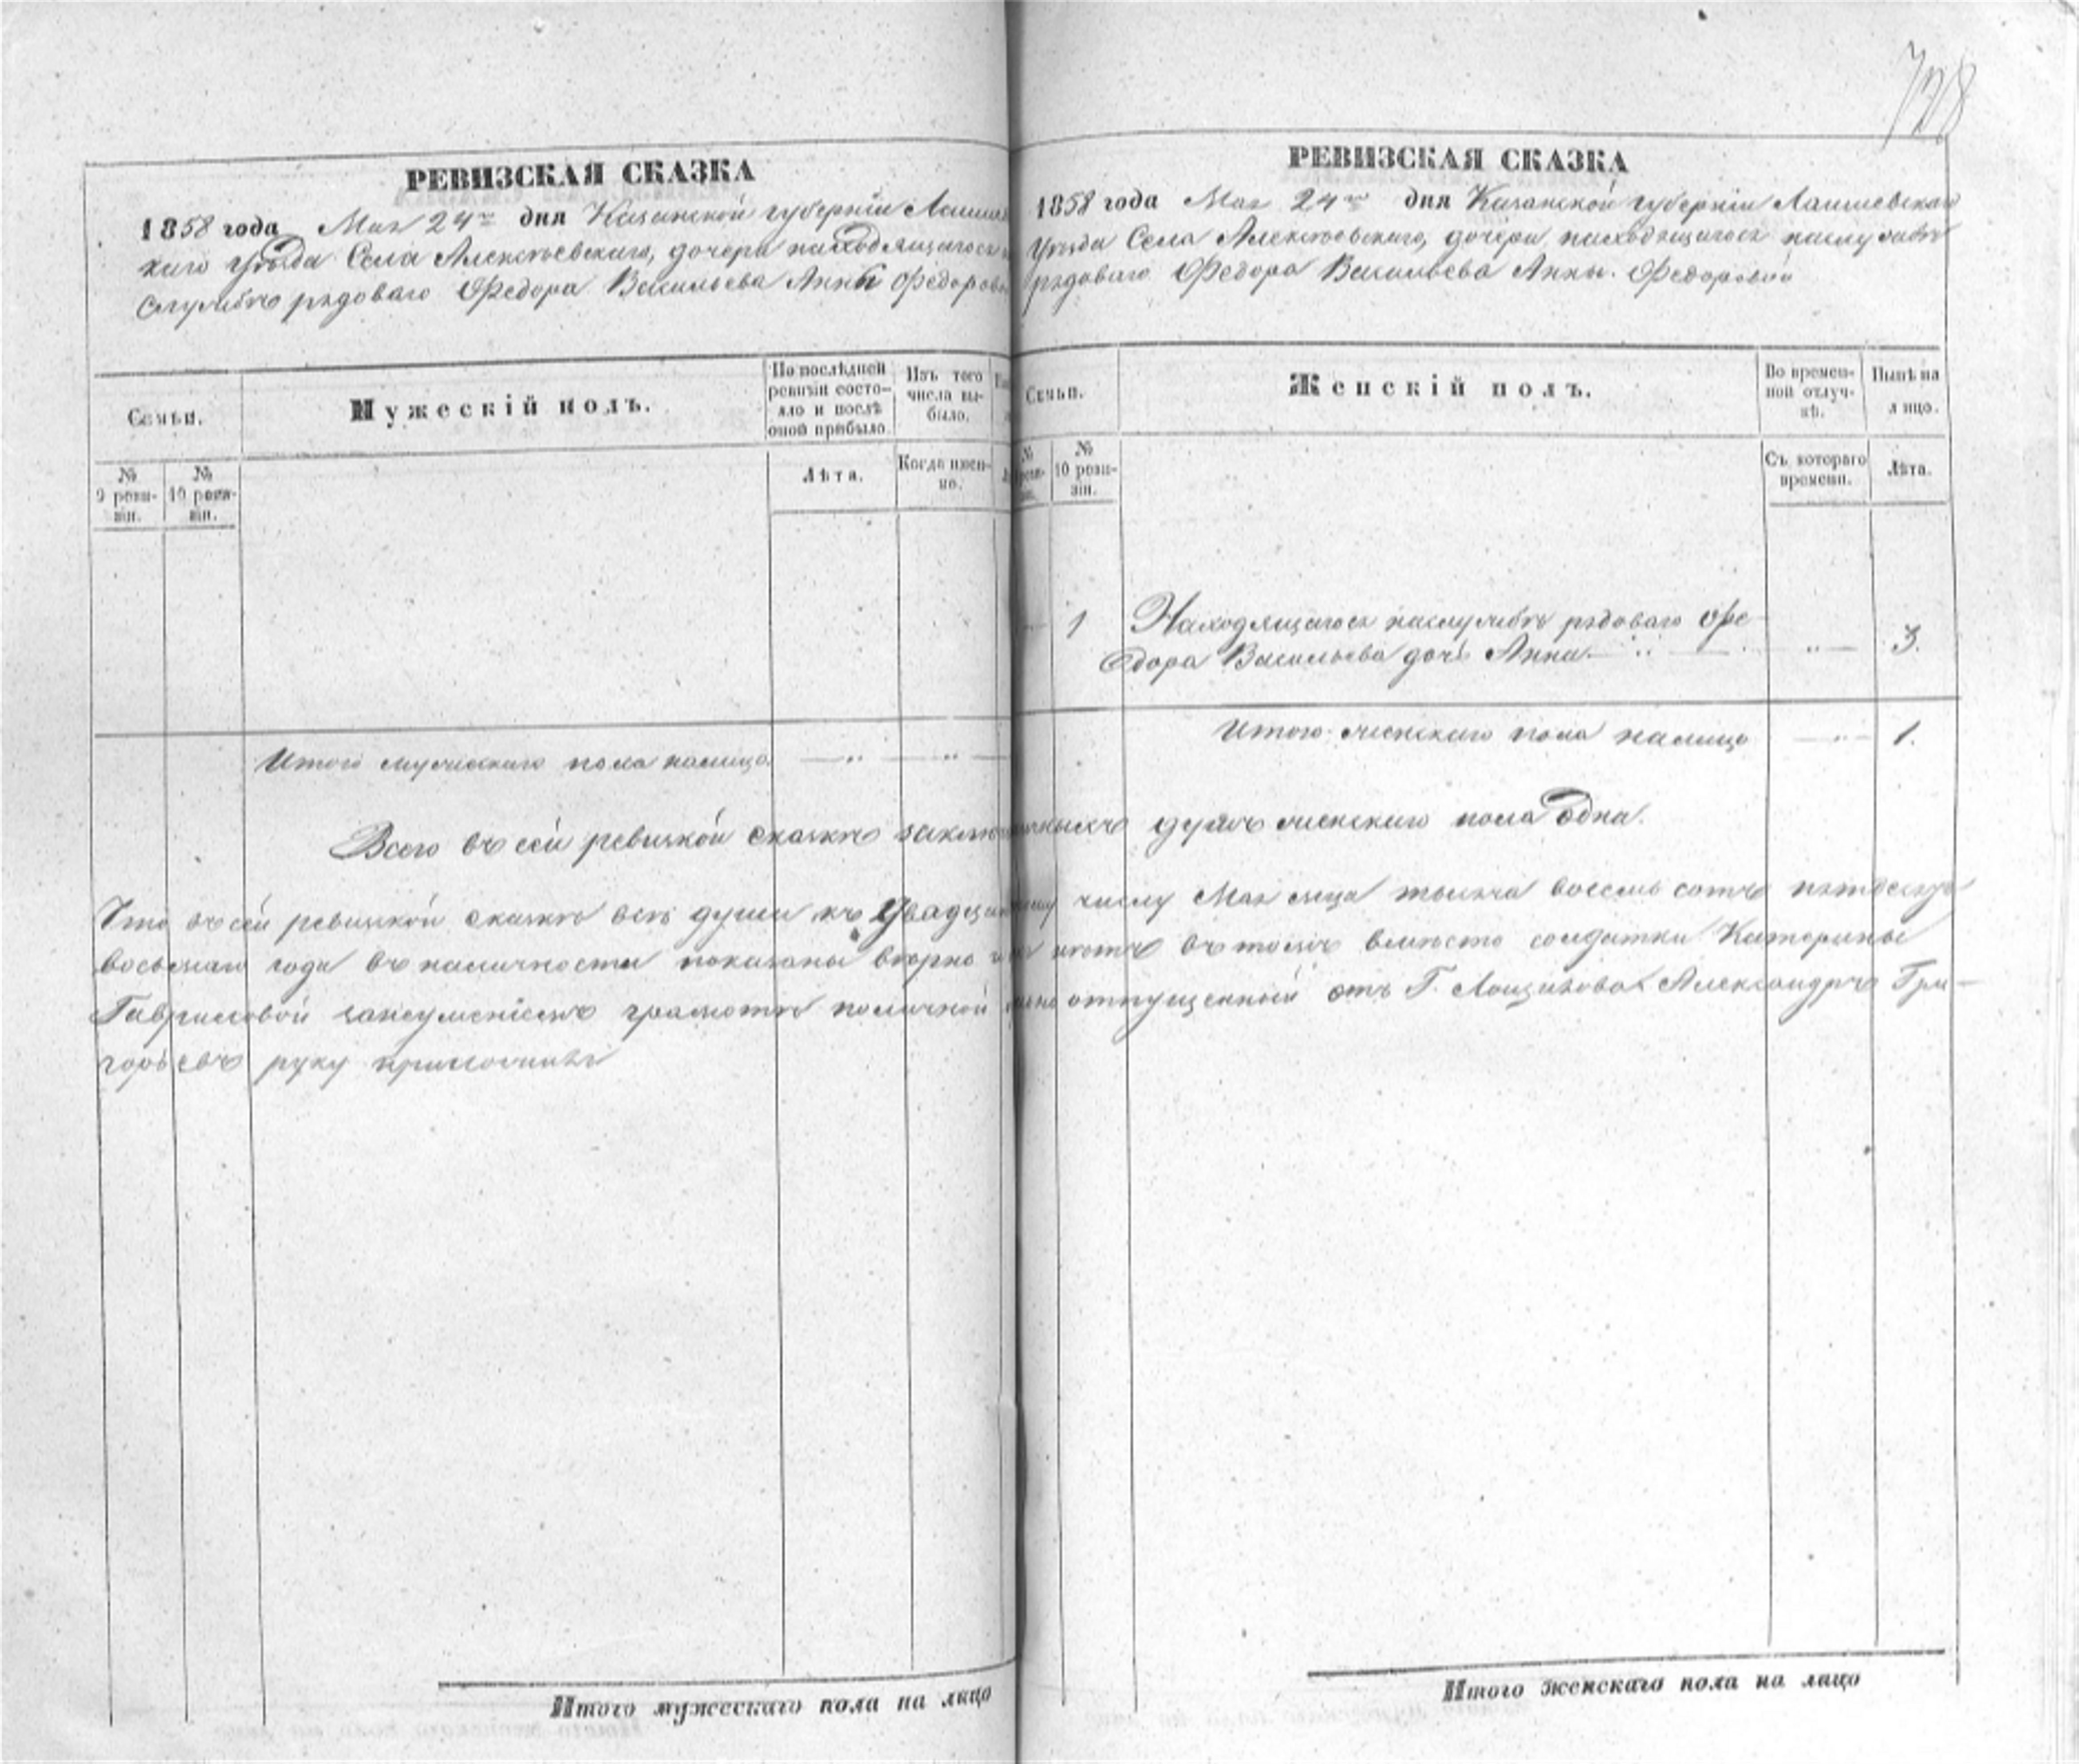 728
РЕВИЗСКАЯ СКАЗКА
1858 года Мая 24го дня Казанской губерніи Лаишев
каго уѣзда Села Алексѣевскаго, дочери находящагося на
службѣ рядоваго Федора Васильева Анны Федоровой
Семьи.
Мужескій полъ.
По послѣдней
ревизіи состо-
яло и послѣ
оной прибыло.
Изъ того
числа вы-
было.
№
9 реви-
зіи.
№
10 реви-
зіи.
Лѣта.
Когда имен-
но.
Итого мужескаго пола налицо.
РЕВИЗСКАЯ СКАЗКА
1858 года Мая 24го дня Казанской губерніи Лаишевскаго
уѣзда Села Алексѣевскаго, дочери находящагося наслужбѣ
рядоваго Федора Васильева Анны Федоровой
Семьи.
Женскій полъ.
Во времен-
ной отлуч-
кѣ.
Нынѣ на
лицо.
№
№
10 реви-
зіи.
Съ котораго
времени.
Лѣта.
1 Находящагося наслужбѣ рядоваго Фе-
дора Васильева дочь Анна 3.
Итого женскаго пола налицо 1.
Всего въ сей ревизкой сказкѣ душъ женскаго пола одна.
Что въ сей ревизкой сказкѣ всѣ души къ числу Мая мца тысяча восемь сотъ пятдесятъ
восьмаго года въ наличности показаны вѣрно и въ томъ вмѣсто солдатки Катерины
Гавриловой занеумѣніемъ грамотѣ поличной отпущенный отъ Г. Александръ Гри-
горьевъ руку приложилъ
Итого мужескаго пола на лицо
Итого женскаго пола на лицо